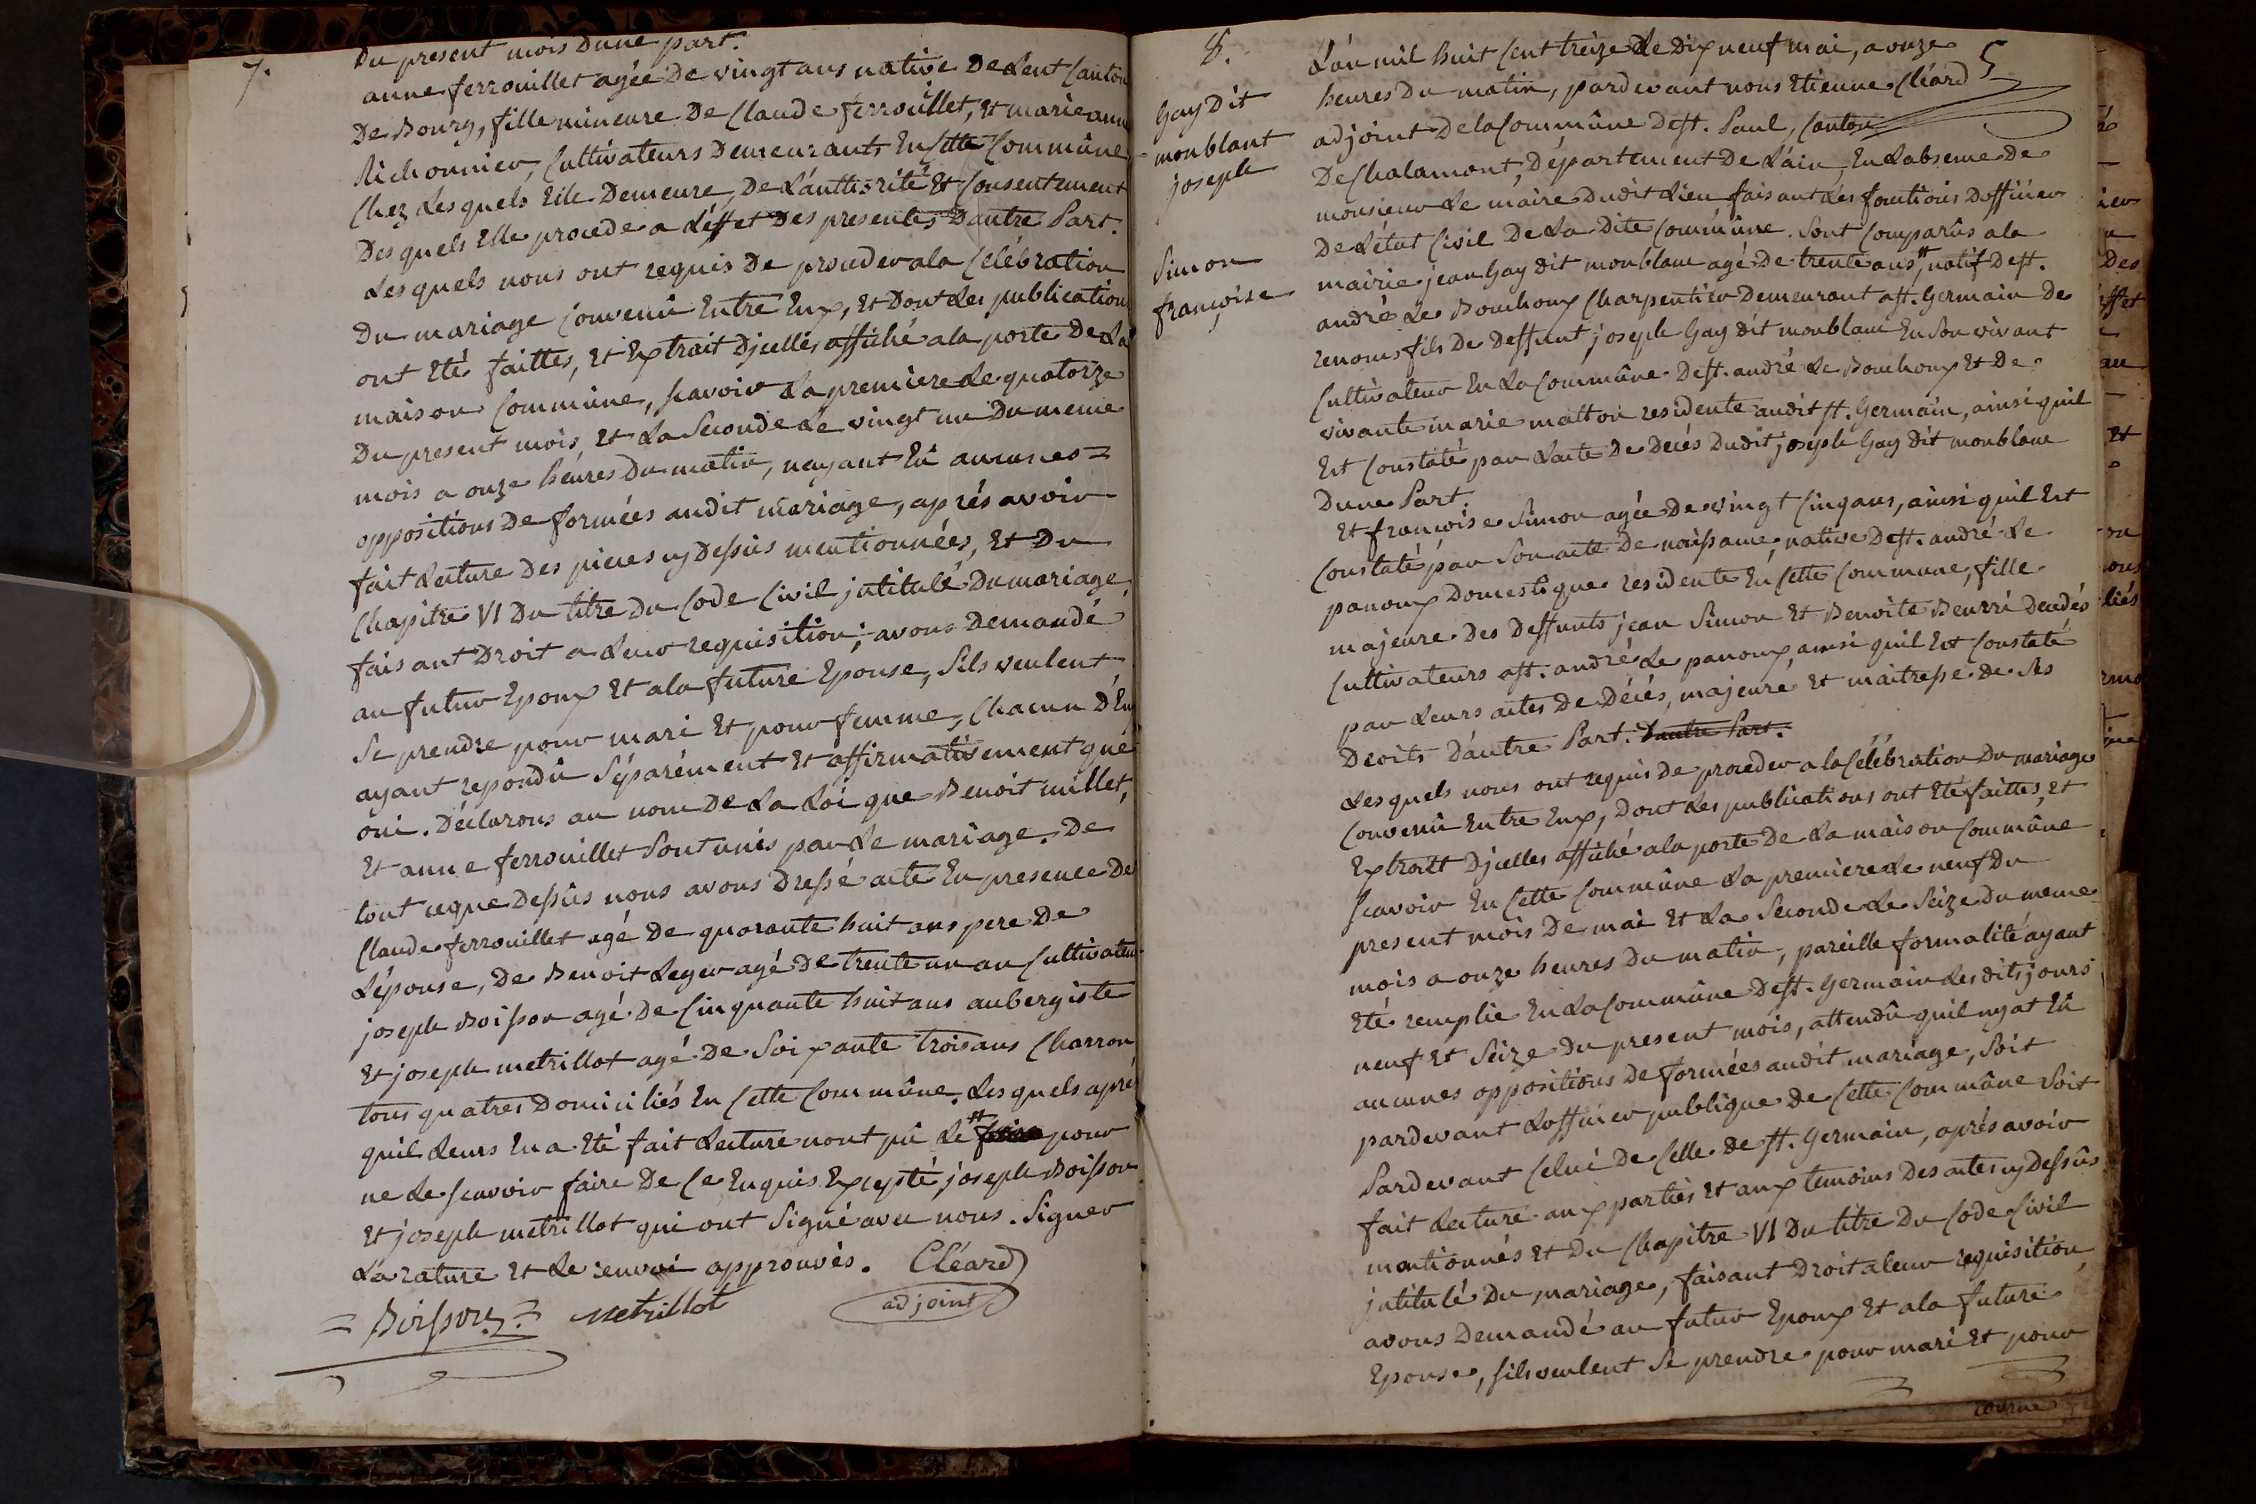 7.
Du present mois Dune part.
anne ferrouillet agée De vingt ans native De Lent Canton
De Bourg, fille mineure De Claude ferrouillet, et marie anne
Richonnier, Cultivateurs Demeurants En Cette Commûne
Chez Lesquels Elle Demeure, De L'authorité Et Consentement
Desquels Elle procede a L'éffet Des presentes Dautre Part.
Lesquels nous ont requis De proceder ala Celébration
Du mariage Convenû Entre Eux, Et Dont Les publications
ont Eté faittes, Et Extrait Djcelles affiché ala porte De La
maison Commûne, scavoir La premiere Le quatorze
Du present mois, Et La Seconde Le vingt un Du meme
mois a onze heures Du matin, nayant Eû aucunes =
oppositions De formées audit mariage, aprés avoir
fait Lecture Des pieces cy Dessûs mentionnées, Et Du
Chapitre VI Du titre Du Code Civil jntitulé Du mariage,
faisant Droit a Leur requisition; avons Demandé
au futur Epoux Et ala future Epouse, S'ils veulent
Se prendre pour mari Et pour femme, Chacun D'Eux
ayant repondû Séparément Et affirmativement que
oui. Déclarons au nom De La Loi que Benoit millet,
Et anne ferrouillet Sont unis par Le mariage. De
tout ceque Dessûs nous avons Dressé acte En presence De
Claude ferrouillet agé De quarante huit ans pere De
L'épouse, De Benoit Leger agé De trente un an Cultivateur
joseph Boisson agé De Cinquante huit ans aubergiste
Et joseph metrillot agé De Soixante trois ans Charron
tous quatres Domiciliés En Cette Commûne. Lesquels aprés
quil Leurs En a Eté fait Lecture nont pû Le # pour
ne Le scavoir faire De Ce Enquis Excepté joseph Boisson
Et joseph metrillot qui ont Signé avec nous. # Signer
La rature Et Le renvoi approuvés. Cléard
= Boisson = metrillot adjoint
8.
Gay Dit
monblant
joseph
Simon
françoise
L'an mil huit Cent treize Le Dix neuf mai, a onze 5
heures Du matin, pardevant nous Etienne Cléard
adjoint De la Commûne De st. Paul, Canton
De Chalamont, Département De L'ain, En Labsence De
monsieur Le maire Dudit Lieu faisant Les fonctions Dofficier
De L'état Civil De La Dite Commûne. Sont Comparûs ala
mairie jean Gay dit monblanc agé De trente ans # natif De st.
andré Le Bouchoux Charpentier Demeurant a st. Germain De
renoms fils De Deffunt joseph Gay dit monblanc En Son vivant
Cultivateur En La Commûne De st. andré Le Bouchoux Et De
vivante marie matton residente audit st. Germain, ainsi quil
Est Constaté par Lacte De Decés Dudit joseph Gay dit monblanc
Dune Part.
Et françoise Simon agée De vingt Cinq ans, ainsi quil Est
Constaté par Son acte De naissance, native De st. andré Le
panoux Domestique residente En Cette Commune, fille
majeure Des Deffunts jean Simon Et Benoite Beurri Decedés
Cultivateurs a st. andré Le panoux, ainsi quil Est Constaté
par Leurs actes De Décés, majeure Et maitresse De Ses
Droits D'autre Part. Dautre Part.
Lesquels nous ont requis De proceder ala Célébration Du mariage
Convenû Entre Eux, Dont Les publications ont Eté faittes, Et
Extrait Djcelles affiché ala porte De La maison Commûne
scavoir En Cette Commûne La premiere Le neuf Du
present mois De mai Et La Seconde Le Seize Du meme
mois a onze heures Du matin, pareille formalité ayant
Eté remplie En La Commûne De st. Germain Lesdits jours
neuf Et Seize Du present mois, attendû quil nyat Eû
aucunes oppositions De formées audit mariage, Soit
pardevant Lofficier publique De Cette Commûne Soit
Pardevant Celui De Celle De st. Germain, aprés avoir
fait Lecture aux parties Et aux temoins Des actes cy Dessûs
mentionnés Et Du Chapitre VI Du titre Du Code Civil
jntitulé Du mariage, faisant Droit aleur requisition,
avons Demandé au futur Epoux Et ala future
Epouse, Sils veulent Se prendre pour mari Et pour
tourne